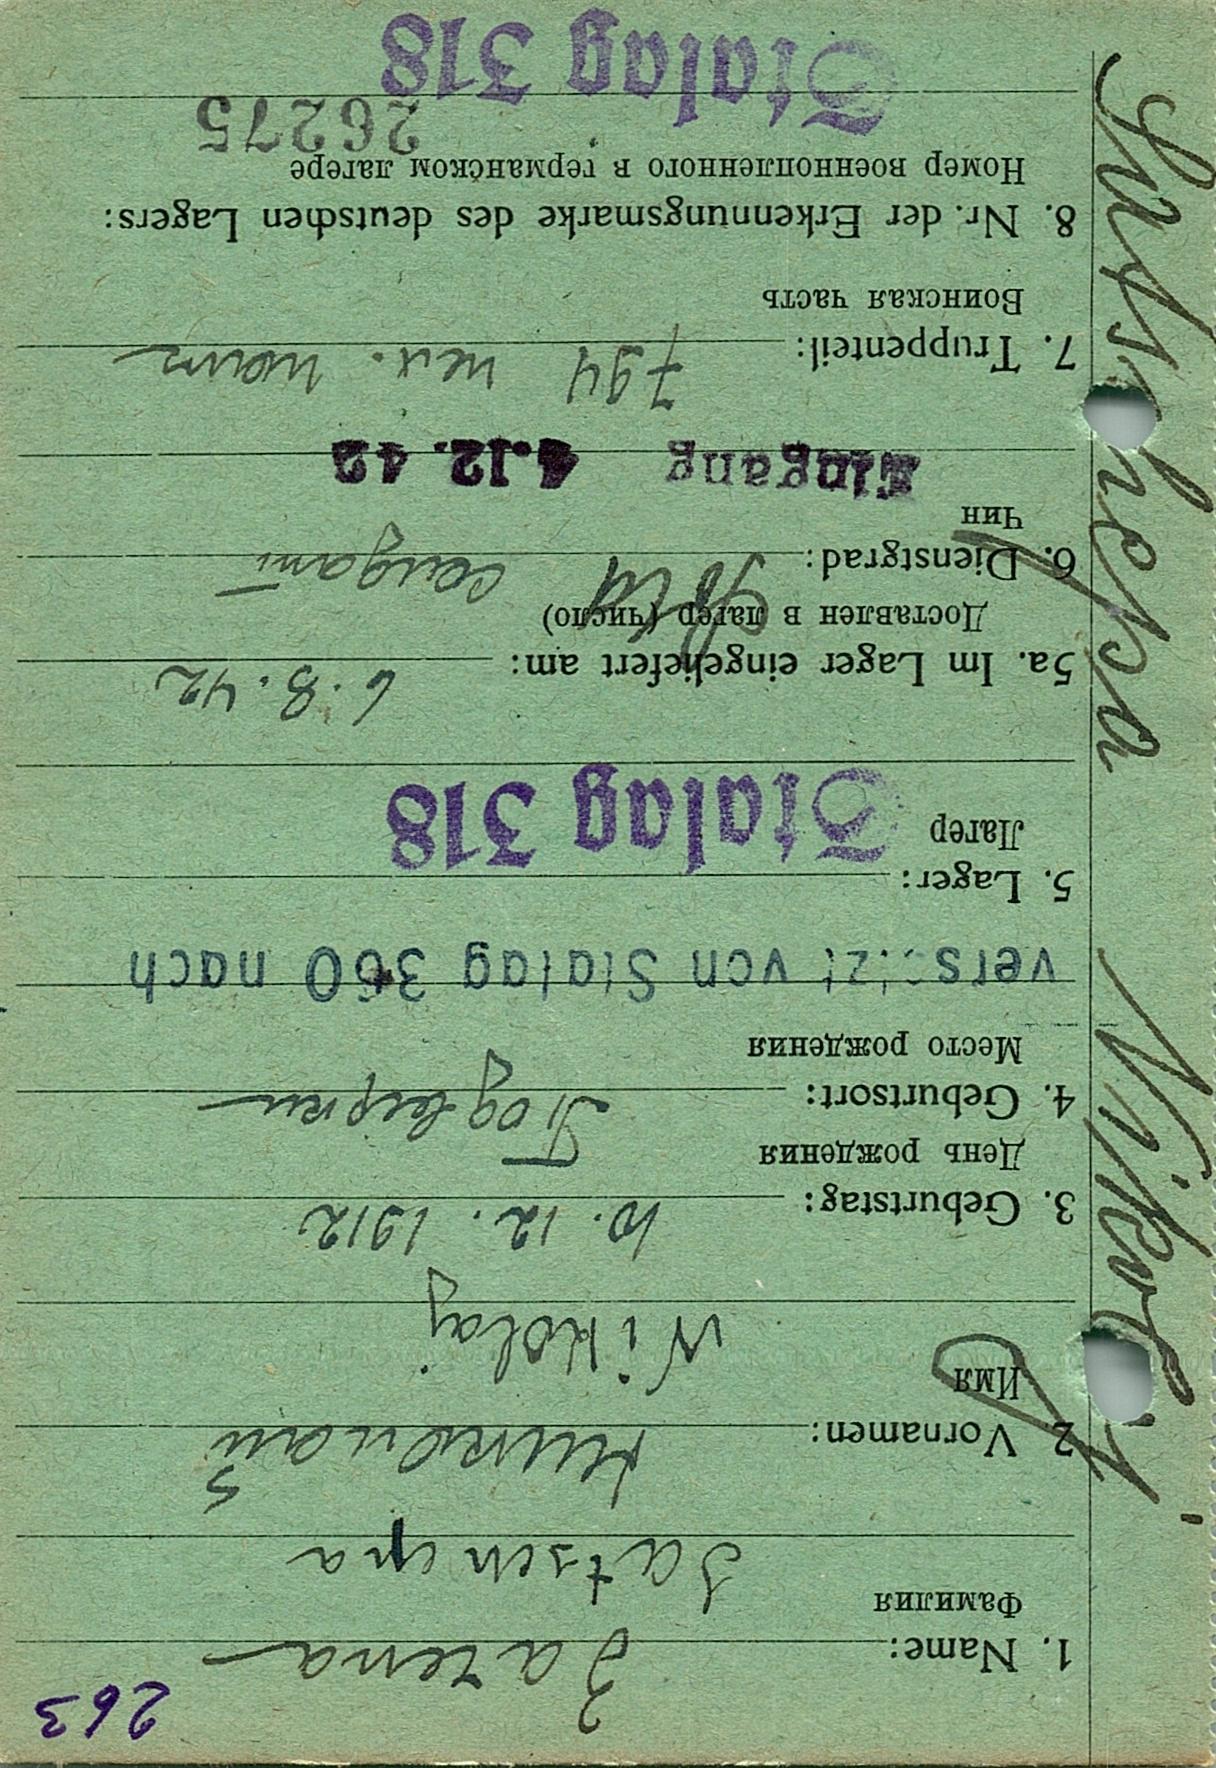 263
1. Name: Зачепа
Фамилия
Satschepa
2. Vornamen: Николай
Имя
Nikolaj
3. Geburtstag: 10. 12. 1912
День рождения
4. Geburtsort:
Место рождения
versetzt von Stalag 360 nach
5. Lager: Stalag 318
Лагер
5a. Im Lager eingeliefert am: 6.8.42
Доставлен в лагер (число)
6. Dienstgrad: Sold
Чин
Eingang 4.12.42
7. Truppenteil: 794 пех. полк
Воинская часть
8. Nr. der Erkennungsmarke des deutschen Lagers:
Номер военнопленного в германском лагере
26275
Stalag 318
Satschepa Nikolaj